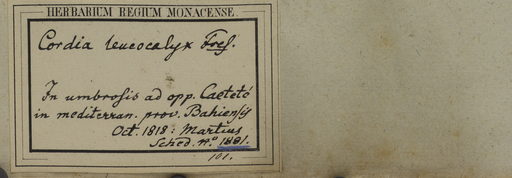 HERBARIUM REGIUM MONACENSE.
Cordia leucocalyx Fres.
In umbrosis ad opp. Caeteté
in mediterran. prov. Bahiensis
Oct. 1818: Martius
Sched. no. 1881.
101.